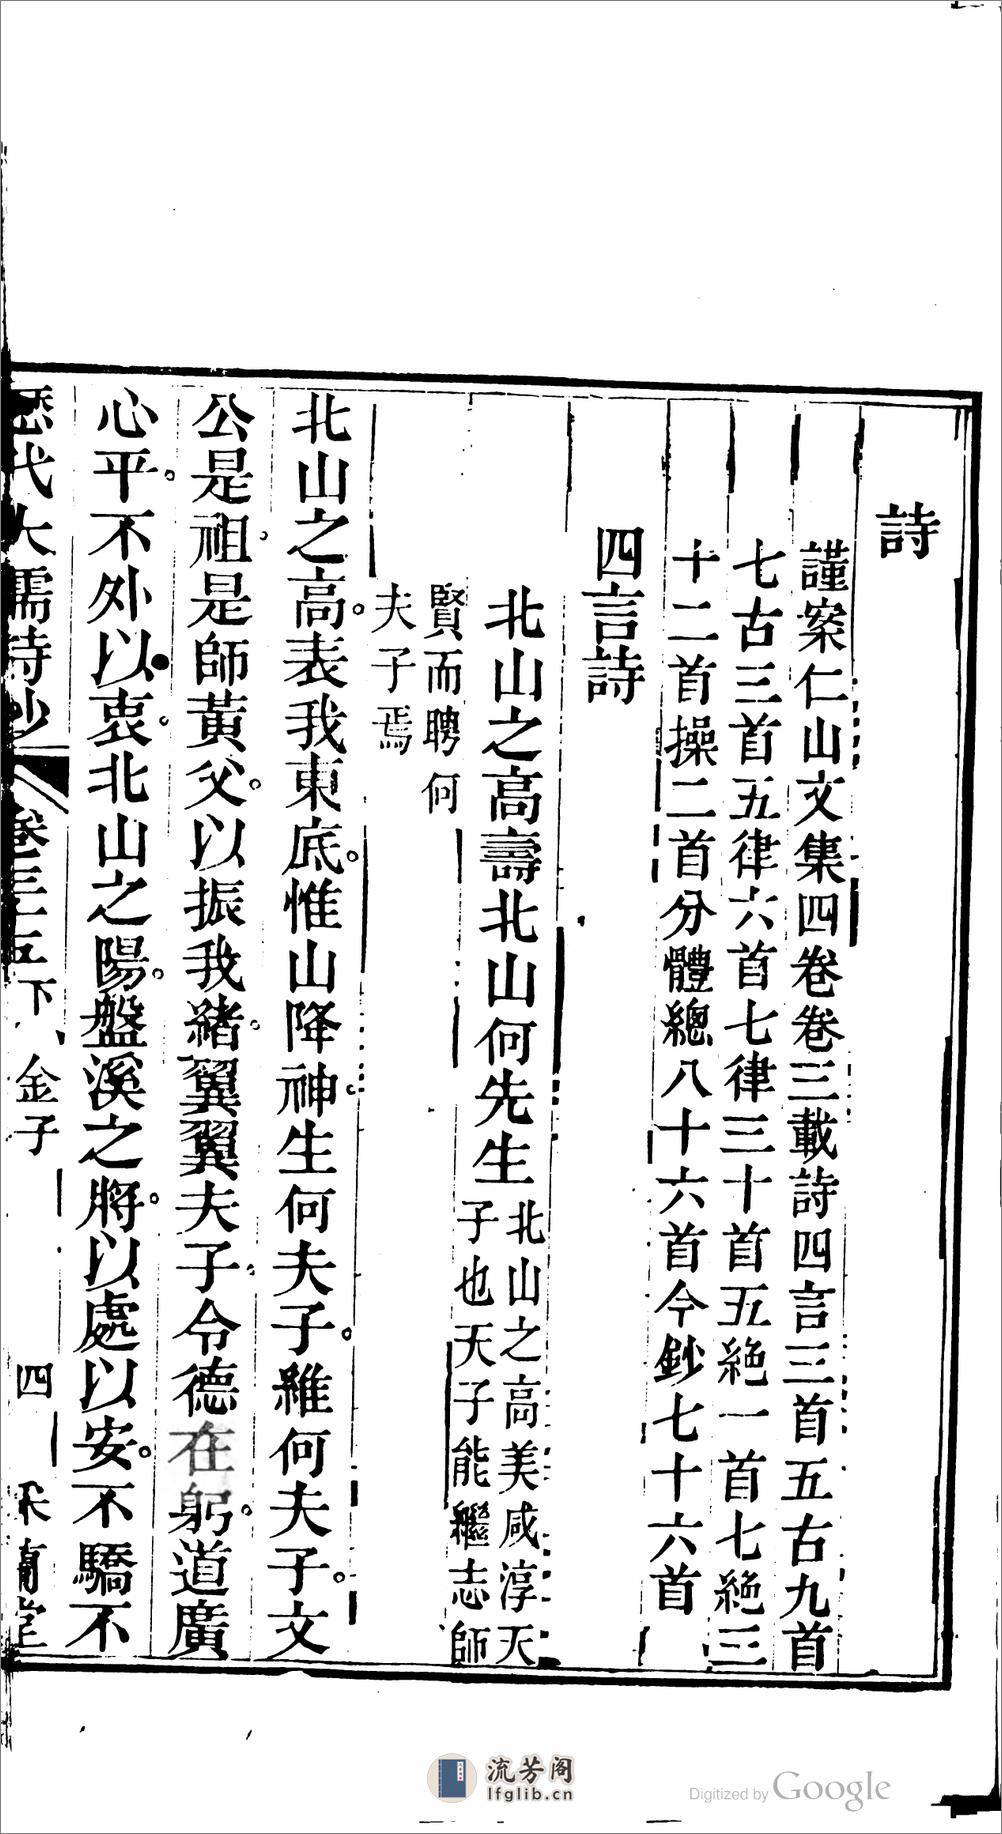 詩
謹案仁山文集四卷卷三載詩四言三首五古九首
七古三首五律六首七律三十首五絶一首七絶三
十二首操二首分體總八十六首今鈔七十六首
四言詩
北山之高壽北山何先生北山之高美咸淳天
子也天子能繼志師
賢而聘何
夫子焉
北山之高。表我東底。惟山降神。生何夫子。維何夫子。文
公是祖。是師黃父。以振我緒。翼翼夫子。令德在躬。道廣
心平。不外以衷。北山之陽。盤溪之將。以處以安。不驕不
歷代大儒詩鈔 卷三十五下 金子 四 禾滈堂
流芳阁
lfglib.cn
Digitized by Google